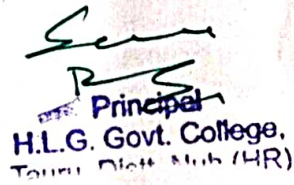 Principal
H.L.G. Govt. College,
Tauru Distt. Nuh (HR)